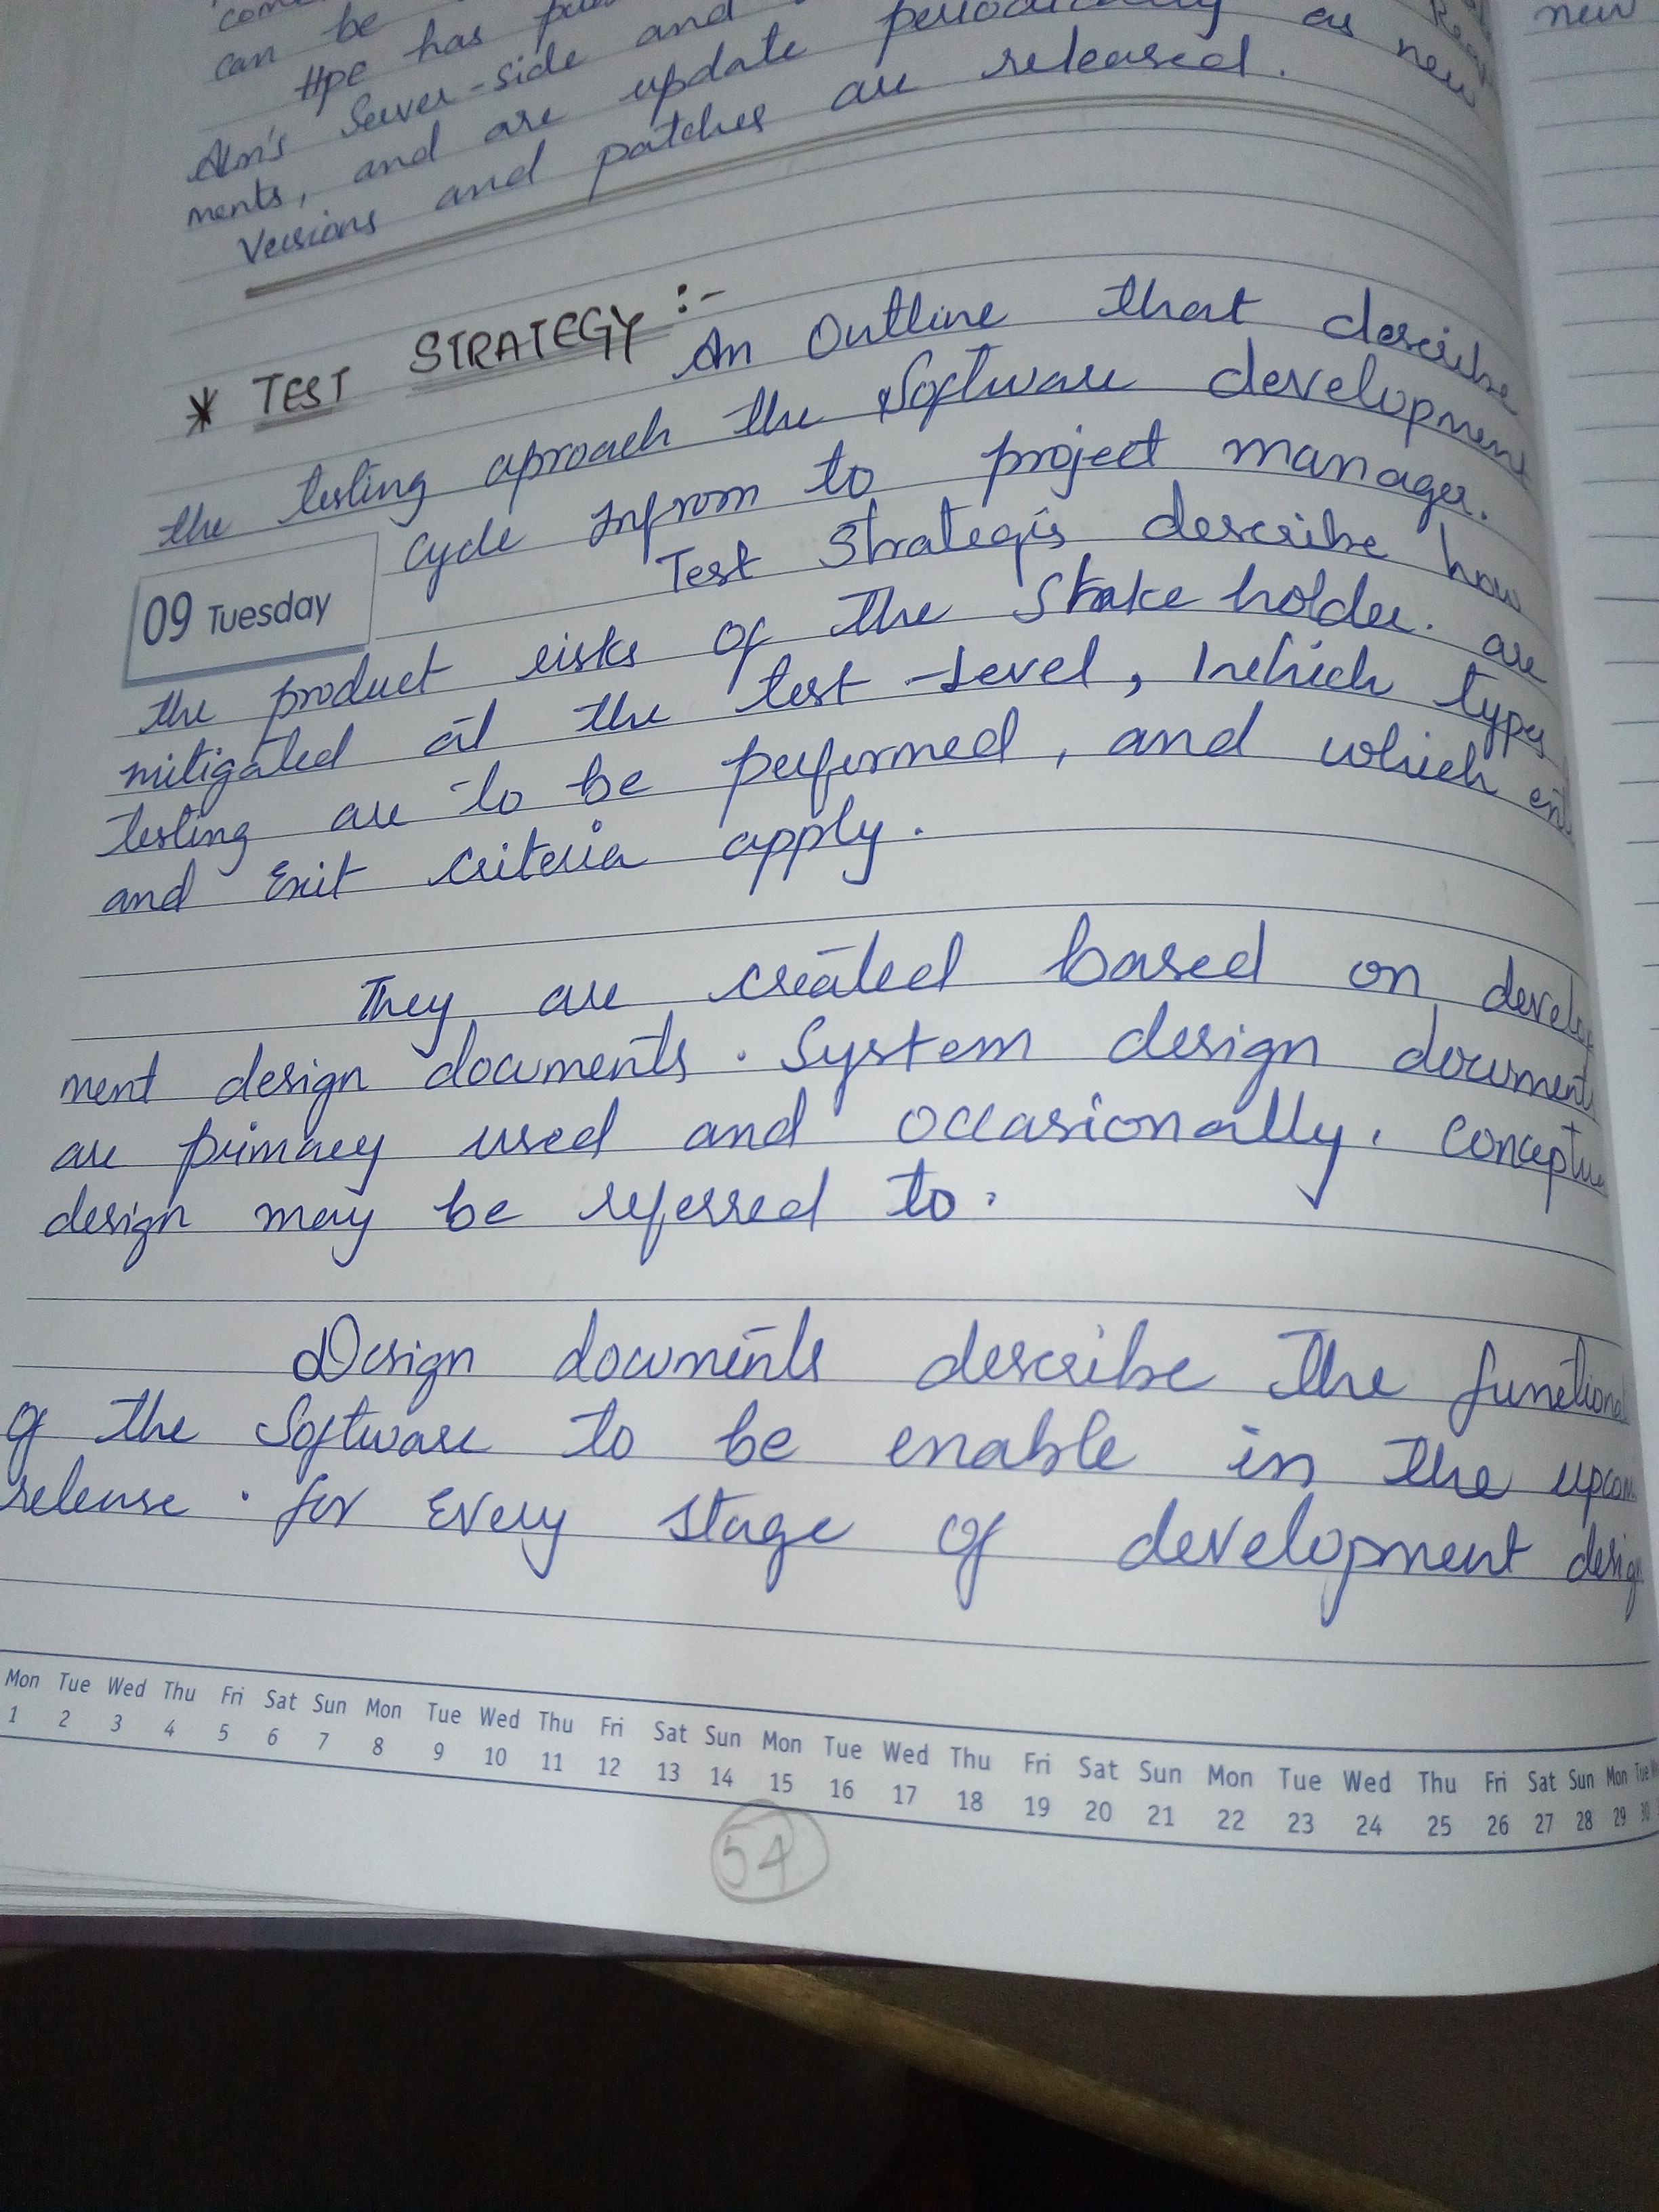 can be
Hpe has
Alm's Server-side and
ments, and are update periodically as new
Versions and patches are released.
new
* TEST STRATEGY :-
An Outline that describe
the testing aproach the Software development
cycle Infrom to project manager.
09 Tuesday
Test Strategis describe how
the product risks of the Stake holder. are
mitigated at the test-level, which types
testing are to be performed, and which
and Exit criteria apply.
They are created based on develop
ment design documents. System design document
are primary used and occasionally, conceptu
design may be referred to.
Design documents describe the functional
of the Software to be enable in the upcom
release. for Every stage of development design
Mon Tue Wed Thu Fri Sat Sun Mon Tue Wed Thu Fri Sat Sun Mon Tue Wed Thu Fri Sat Sun Mon Tue Wed Thu Fri Sat Sun Mon Tue
1 2 3 4 5 6 7 8 9 10 11 12 13 14 15 16 17 18 19 20 21 22 23 24 25 26 27 28 29 30
54